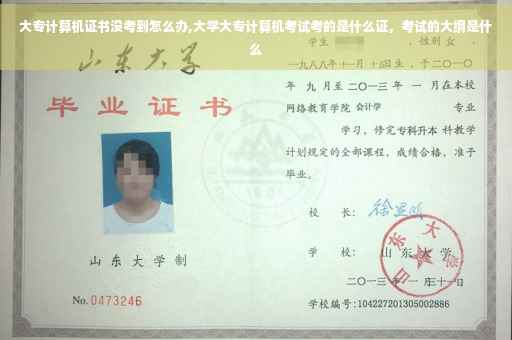 大专计算机证书没考到怎么办,大学大专计算机考试考的是什么证，考试的大纲是什
么
山东大学
毕业证书
山东大学制
No.0473246
学生 ，性别 女 ，
一九八八年十一月十四日生，于二〇一〇
年 九 月至 二〇一三年 一 月在本校
网络教育学院 会计学 专业
学习，修完专科升本 科教学
计划规定的全部课程，成绩合格，准予
毕业。
校 长：
学 校： 山 东 大 学
二〇一三年 一 月三十一日
学校编号:104227201305002886
山东大学